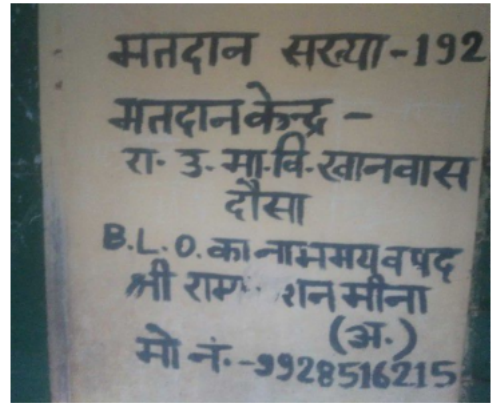 मतदान सख्या-192
मतदान केन्द्र -
रा. उ. मा.वि. खानवास
दौसा
B.L.O. का नाम मय व पद
श्री राम शन मीना
(अ.)
मो नं.-9928516215